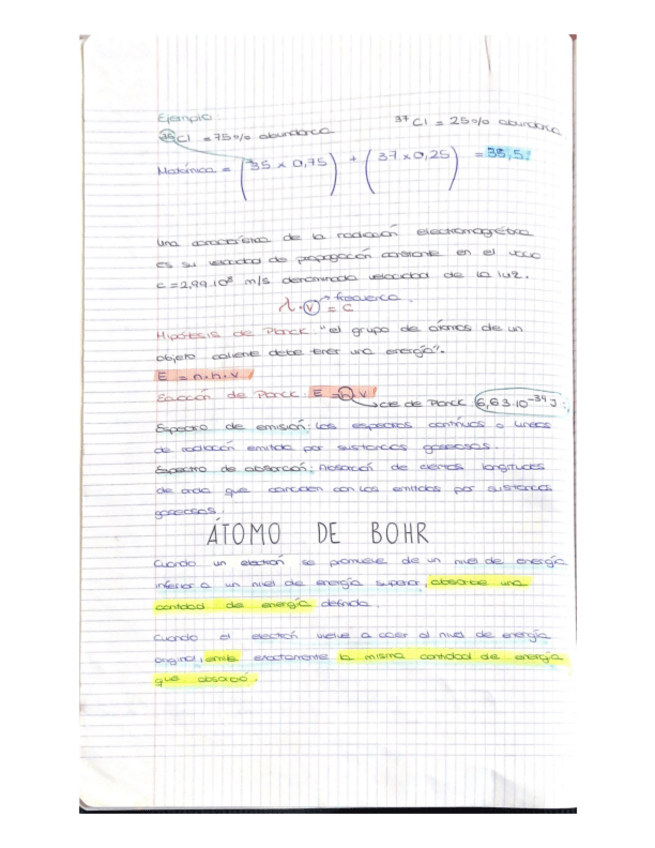 Ejemplo
³⁵Cl = 75% abundancia
³⁷Cl = 25% abundancia
M atómica = (35 x 0,75) + (37 x 0,25) = 35,5
Una característica de la radiación electromagnética
es su velocidad de propagación constante en el vacío
c = 2,99.10⁸ m/s denominada velocidad de la luz.
frecuencia.
λ.v = c
Hipótesis de Planck "el grupo de átomos de un
objeto caliente debe tener una energía".
E = n.h.v
Ecuación de Planck: E = h.v
cte de Planck 6,63.10⁻³⁴ J.
Espectro de emisión: Los espectros continuos o lineas
de radiación emitida por sustancias gaseosas.
Espectro de absorción: Absorción de ciertas longitudes
de onda que coinciden con las emitidas por sustancias
gaseosas.
ÁTOMO DE BOHR
Cuando un electrón se promueve de un nivel de energía
inferior a un nivel de energía superior, absorbe una
cantidad de energía definida.
Cuando el electrón vuelve a caer al nivel de energía
original, emite exactamente la misma cantidad de energía
que absorbió.